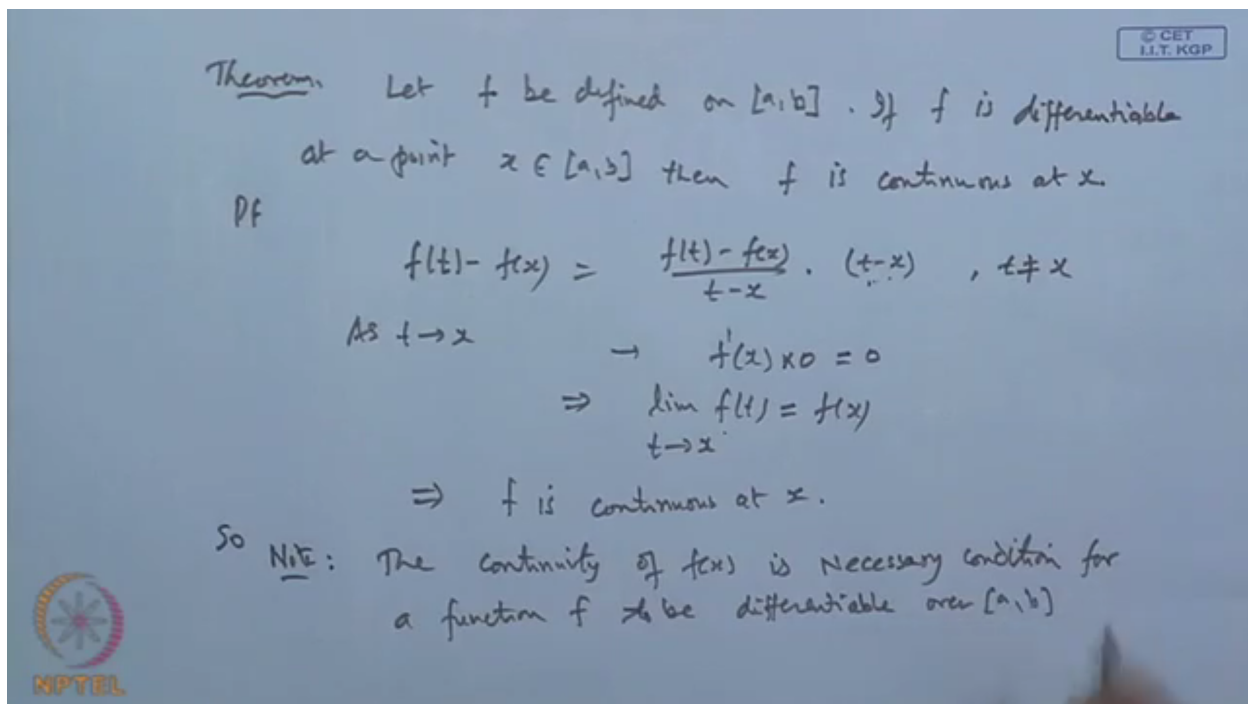 © CET
I.I.T. KGP
Theorem. Let f be defined on [a,b]. If f is differentiable
at a point x ∈ [a,b] then f is continuous at x.
Pf
f(t) - f(x) = \frac{f(t) - f(x)}{t - x} . (t-x) , t ≠ x
As t → x → f'(x) × 0 = 0
⇒ lim f(t) = f(x)
t → x
⇒ f is continuous at x.
So Note: The continuity of f(x) is Necessary condition for
a function f to be differentiable over [a,b]
NPTEL